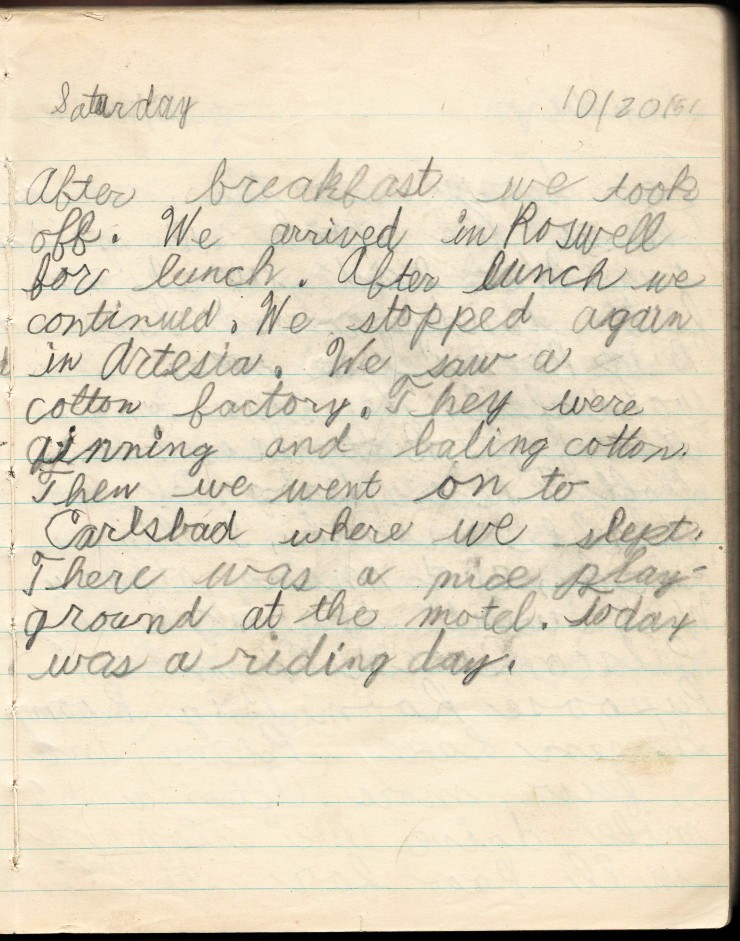 Saturday 10/20/51
After breakfast we took
off. We arrived in Roswell
for lunch. After lunch we
continued. We stopped again
in Artesia. We saw a
cotton factory. They were
ginning and baling cotton.
Then we went on to
Carlsbad where we slept.
There was a nice play-
ground at the motel. Today
was a riding day.